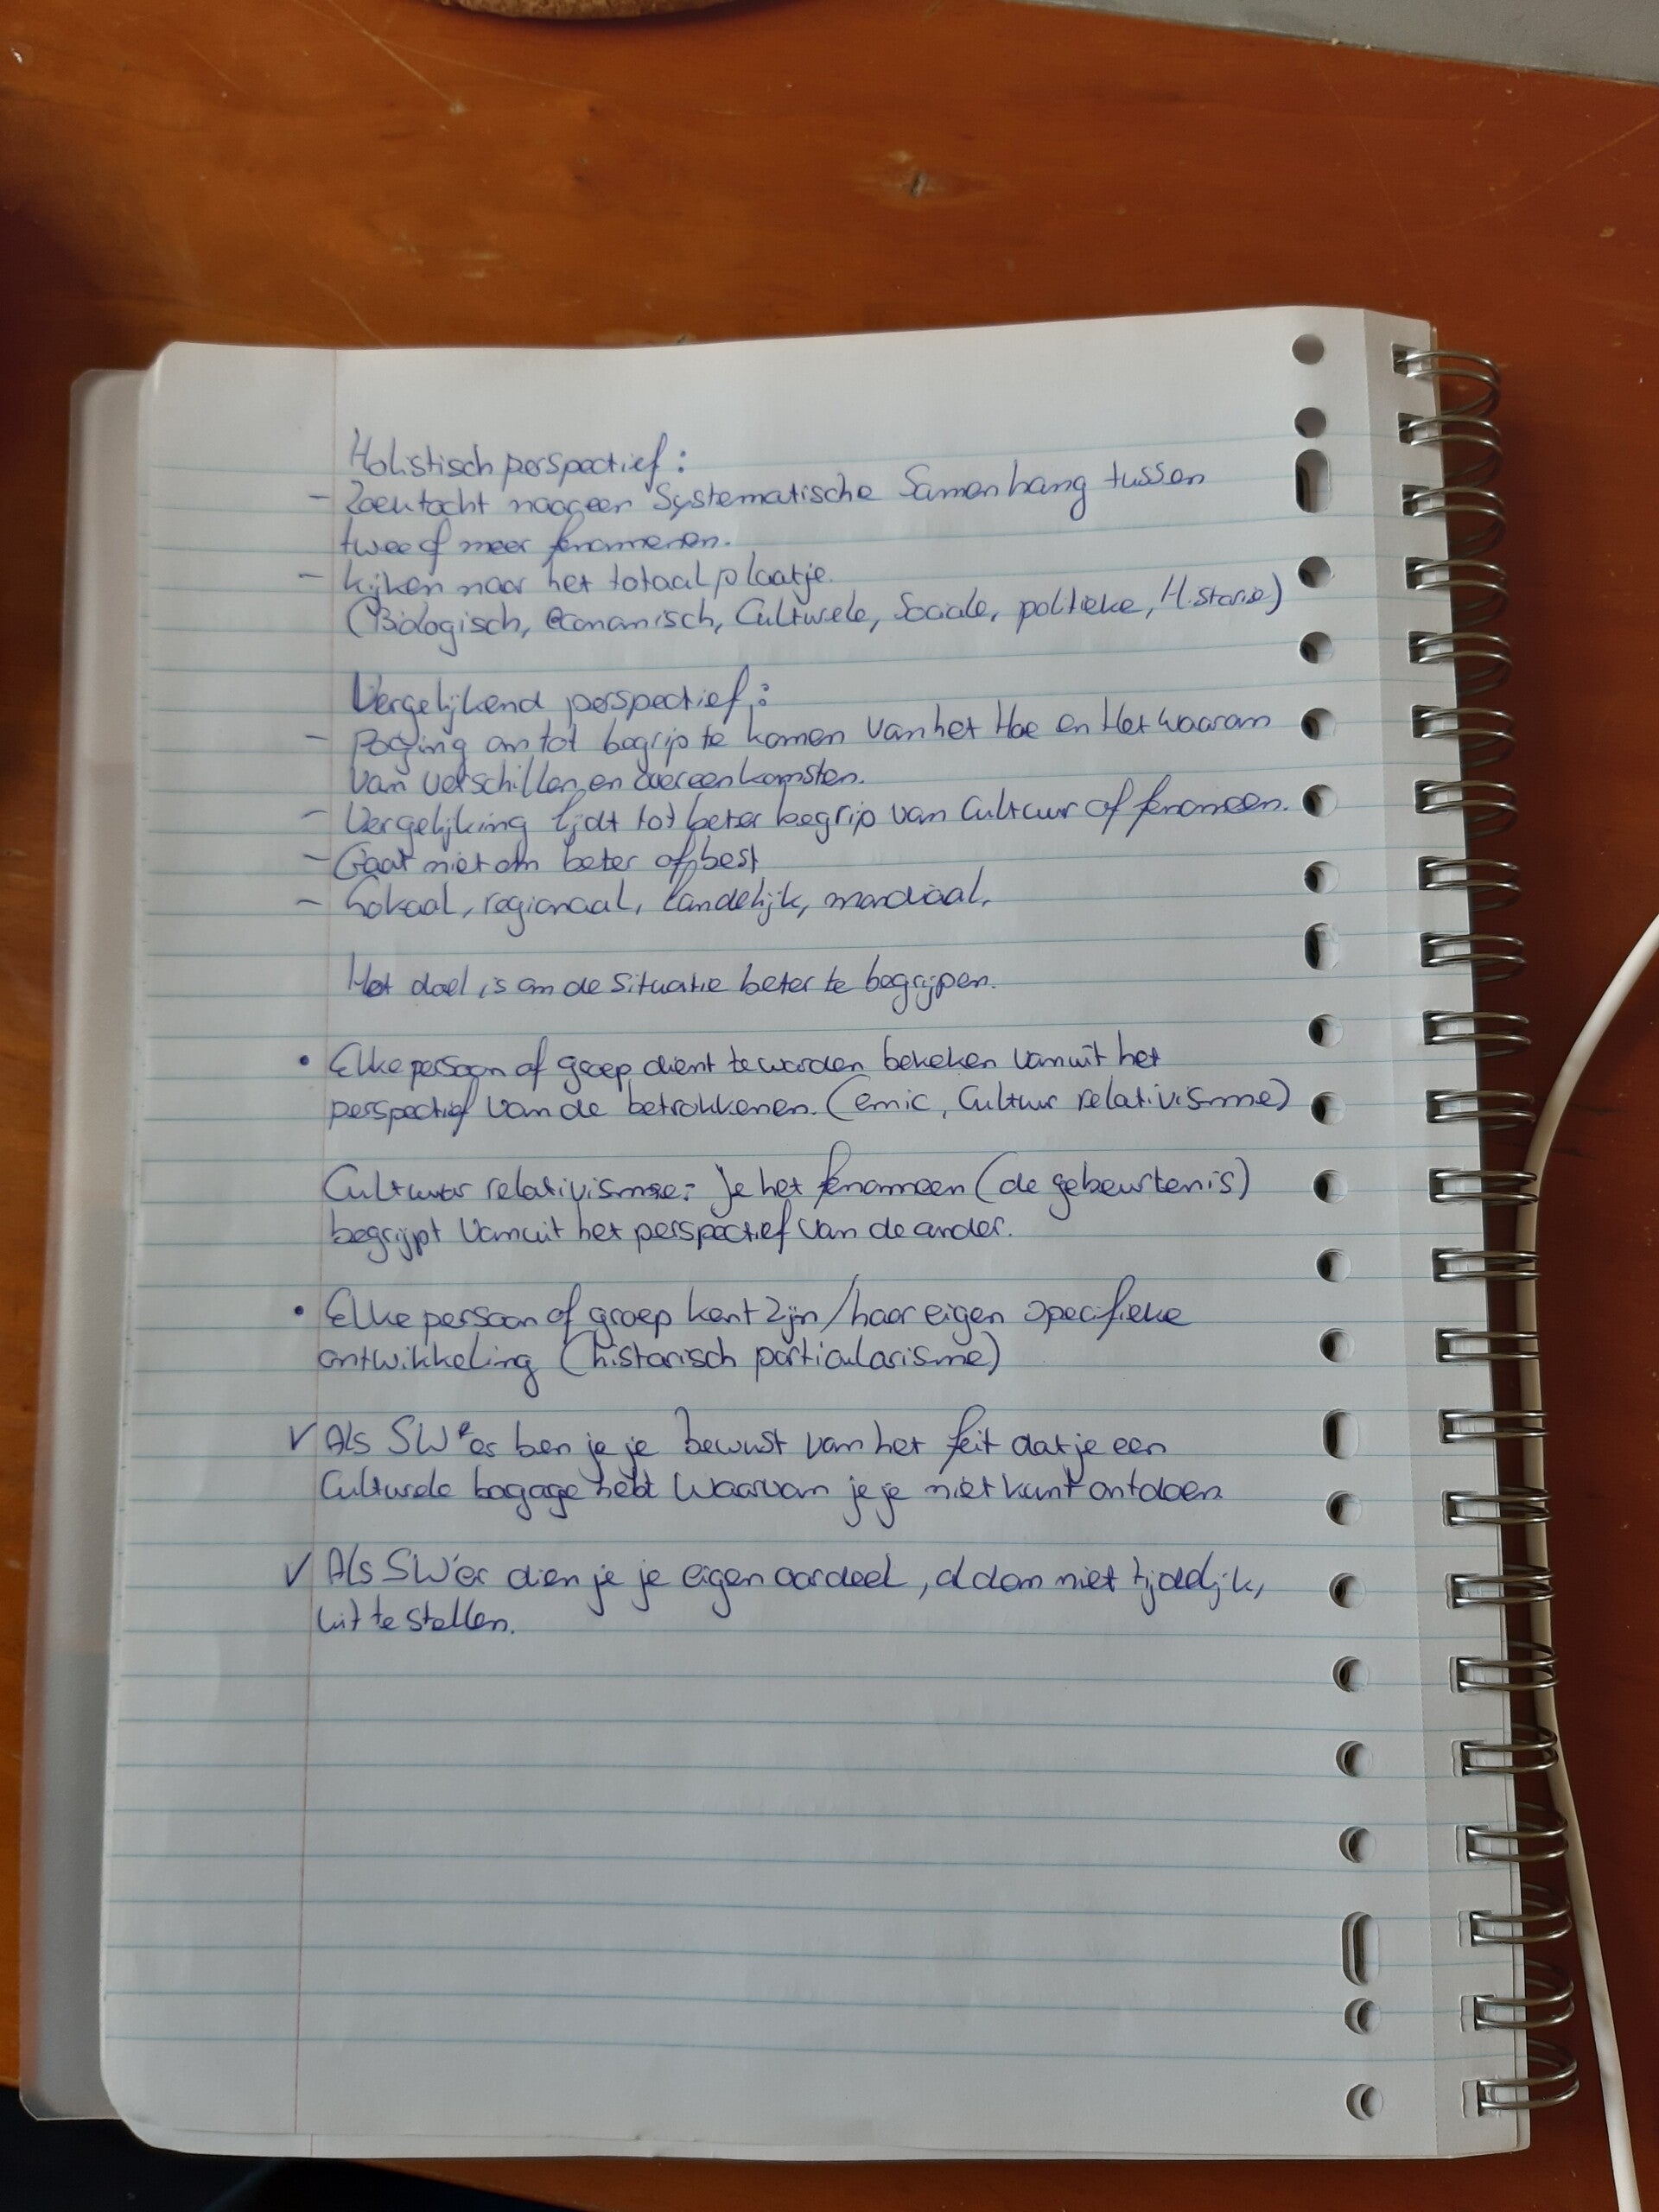 Holistisch perspectief:
- Zoektocht naar een Systematische Samenhang tussen
twee of meer fenomenen.
- kijken naar het totaal plaatje.
(Biologisch, economisch, Culturele, Sociale, politieke, Historie)
Vergelijkend perspectief:
- Poging om tot begrip te komen van het Hoe en Het waarom
van verschillen en overeenkomsten.
- Vergelijking lijdt tot beter begrip van Cultuur of fenomeen.
- Gaat niet om beter of best
- Lokaal, regionaal, landelijk, mondiaal.
Het doel is om de situatie beter te begrijpen.
• Elke persoon of groep dient te worden bekeken vanuit het
perspectief van de betrokkenen. (emic, Cultuur relativisme)
Cultuur relativisme: Je het fenomeen (de gebeurtenis)
begrijpt vanuit het perspectief van de ander.
• Elke persoon of groep kent zijn/haar eigen specifieke
ontwikkeling (historisch particularisme)
✓ Als SW'er ben je je bewust van het feit dat je een
Culturele bagage hebt waarvan je je niet kunt ontdoen
✓ Als SW'er dien je je eigen oordeel, al dan niet tijdelijk,
uit te stellen.